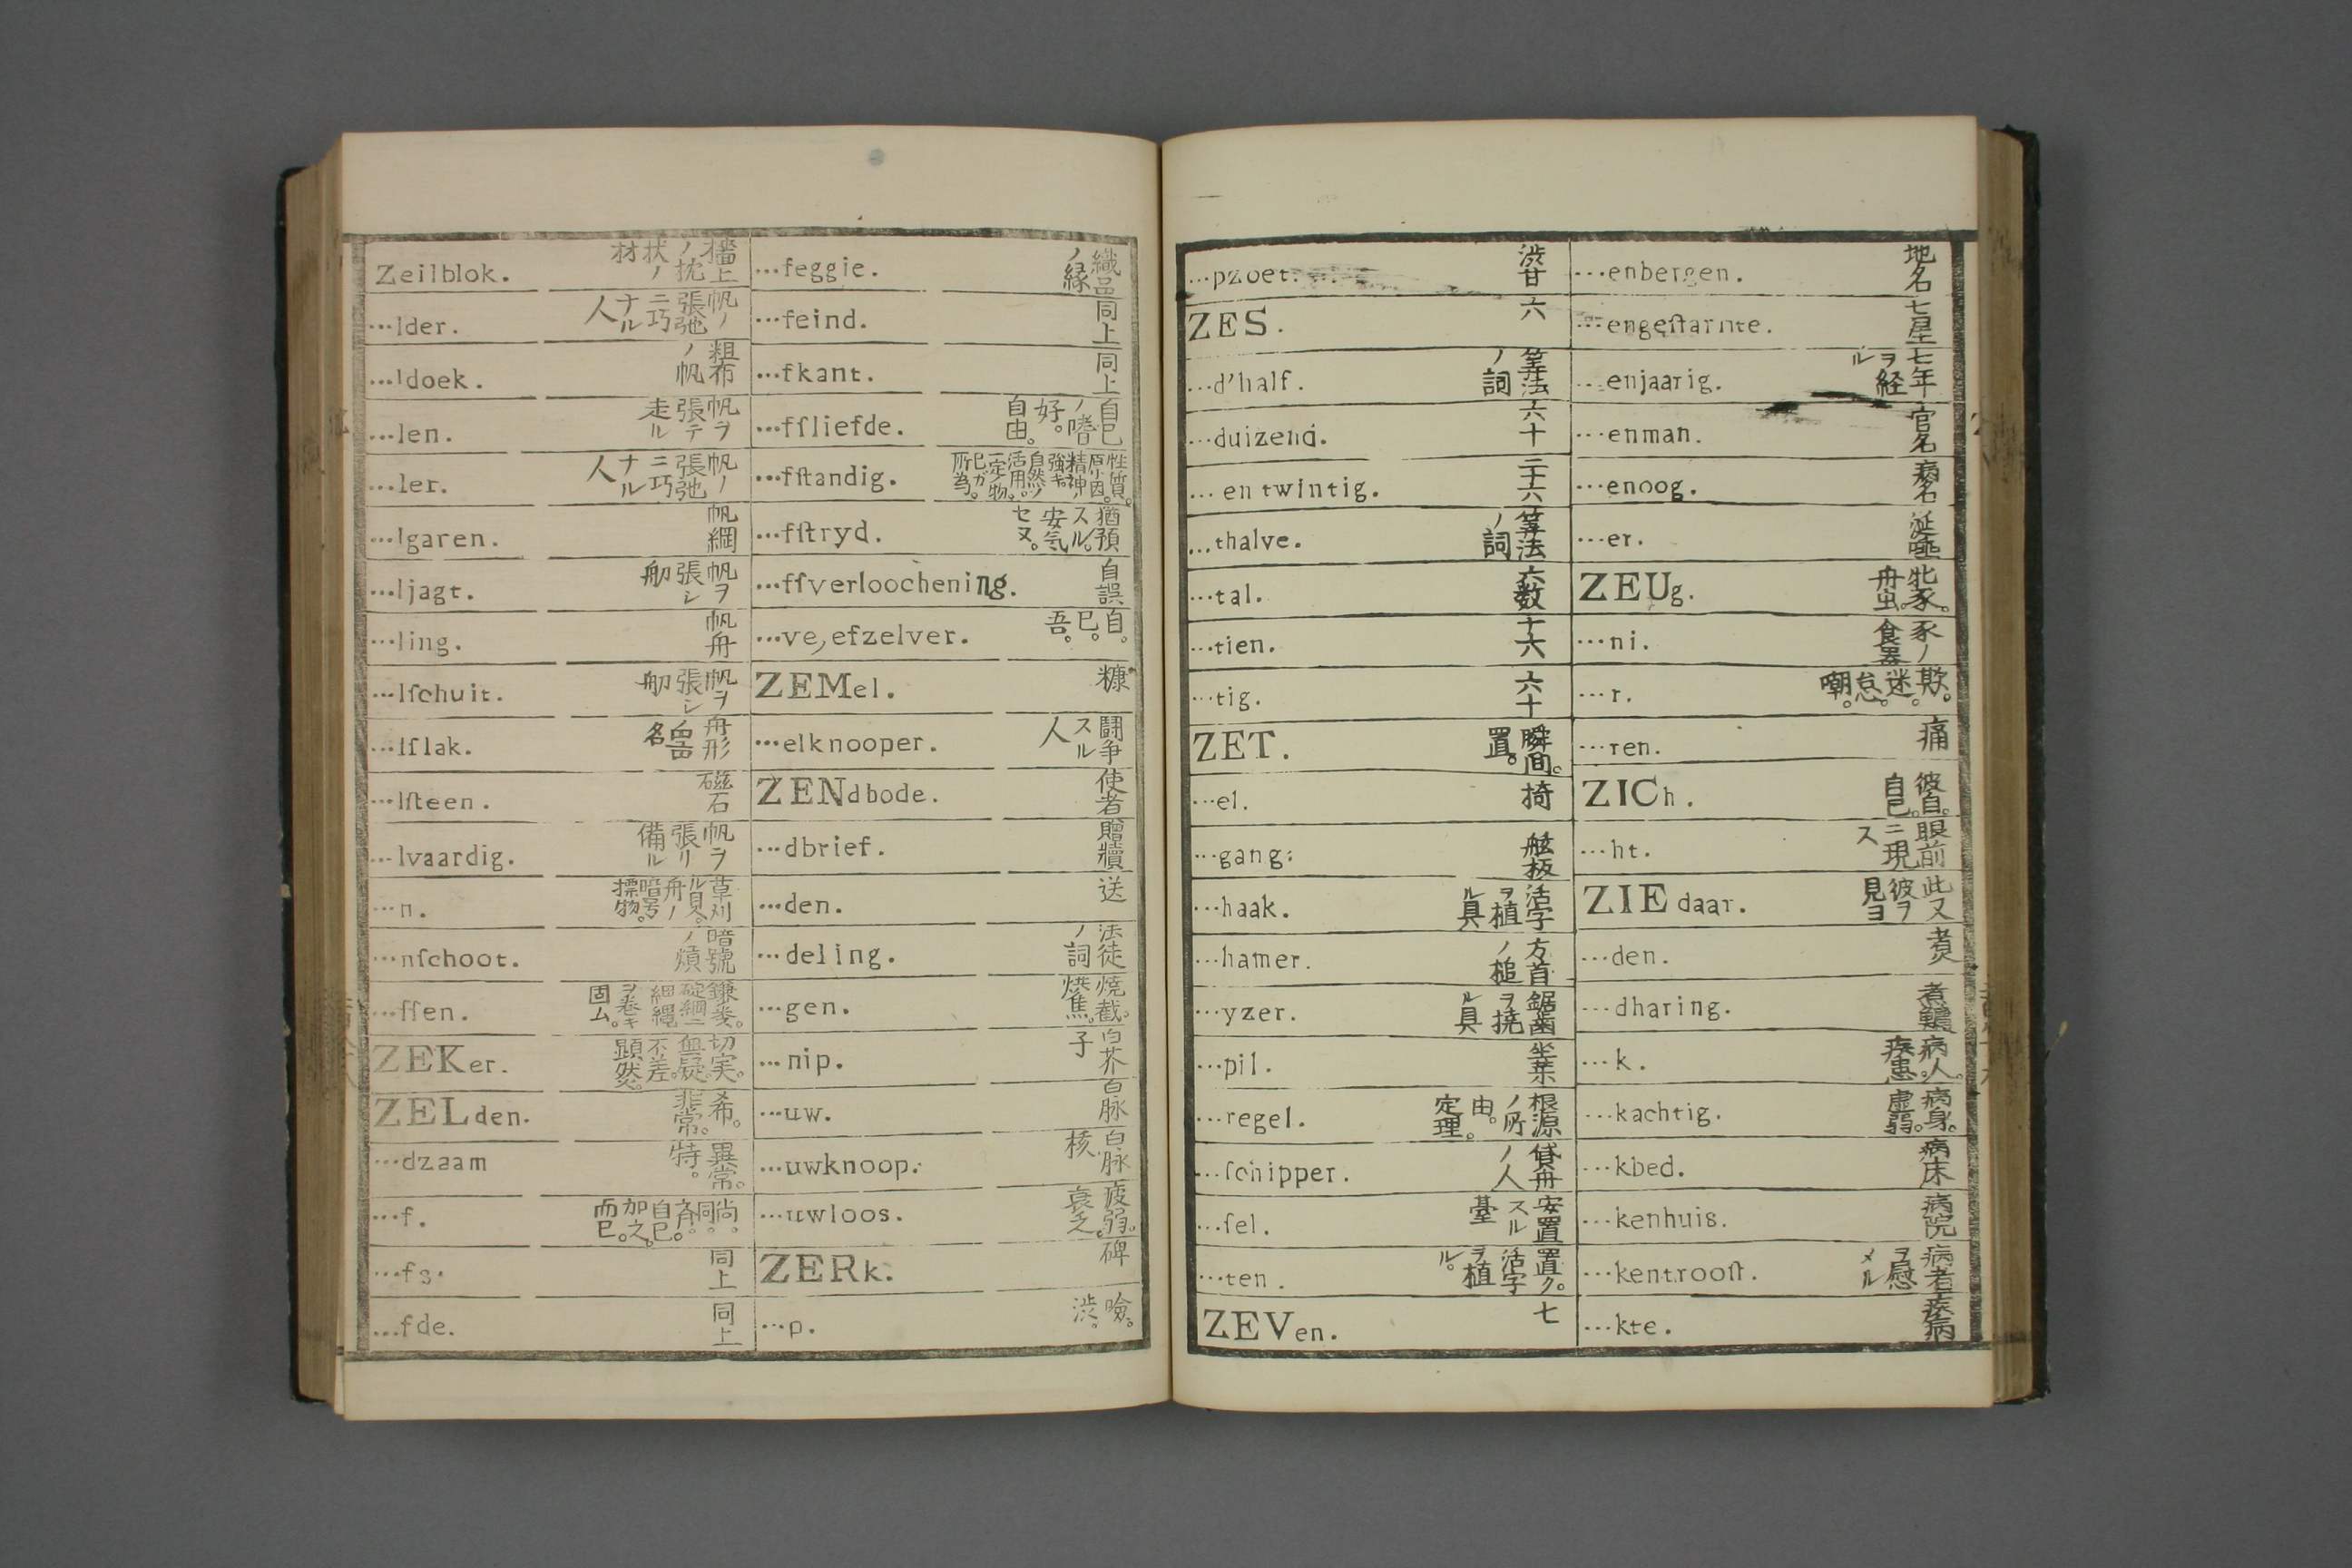 Zeilblok. 檣上ノ枕状ノ材
…lder. 帆ノ張弛ニ巧ナル人
…ldoek. 粗布ノ帆
…len. 帆ヲ張テ走ル
…ler. 帆ノ張弛ニ巧ナル人
…lgaren. 帆綱
…ljagt. 帆ヲ張シ舠
…ling. 帆舟
…lſchuit. 帆ヲ張シ舠
…lſlak. 舟形名
…lſteen. 磁石
…lvaardig. 帆ヲ張リ備ル
…n. 草刈ル具。舟ノ暗号ノ摽物。
…nſchoot. 暗號ノ熕
…ſſen. 鎌麦。碇綱ニ細縄ヲ巻キ固ム。
ZEKer. 切実。無疑。不差。顕然。
ZELden. 希。非常。
…dzaam 異常。特。
…f. 尚。同。斉。自己。加之。而已。
…fs. 同上
…fde. 同上
…feggie. 織邑ノ縁
…feind. 同上
…fkant. 同上
…fſliefde. 自己ノ嗜好。自由。
…fſtandig. 性質。原因。精神ノ強キ。自然ノ活用。一定ノ物。己カ所為。
…fſtryd. 猶預スル。安気セヌ。
…fſverloochening. 自誤
…ve, efzelver. 自。已。吾。
ZEMel. 糠
…elknooper. 闘争スル人
ZENdbode. 使者
…dbrief. 贈牘
…den. 送
…deling. 法徒ノ詞
…gen. 焼截。焼焦。
…nip. 白芥子
…uw. 白脉
…uwknoop. 白脉核
…uwloos. 疲弱。衰乏。
ZERk. 碑
…p. 噞。渋。
…pzoet. 渋甘
ZES. 六
…d'half. 筭法ノ詞
…duizend. 六十
…en twintig. 二十六
…thalve. 筭法ノ詞
…tal. 六数
…tien. 十六
…tig. 六十
ZET. 瞬間。置。
…el. 掎
…gang. 舷板
…haak. 活字ヲ植ル具
…hamer. 方首ノ槌
…yzer. 鋸歯ヲ撓ル具
…pil. 坐薬
…regel. 根源ノ所由。定理。
…ſchipper. 貸舟ノ人
…ſel. 安置スル臺
…ten. 置ク。活字ヲ植ル。
ZEVen. 七
…enbergen. 地名
…engeſtarnte. 七星
…enjaarig. 七年ヲ経ル
…enman. 官名
…enoog. 病名
…er. 涎唾
ZEUg. 牝豕。舟虫。
…ni. 豕ノ食器
…r. 欺。迷。怠。嘲。
…ren. 痛
ZICh. 彼自。自已。
…ht. 眼前ニ現ス
ZIE daar. 此又彼ヲ見ヨ
…den. 煮
…dharing. 煮鯡
…k. 病人。疾患。
…kachtig. 病身。虚弱。
…kbed. 病床
…kenhuis. 病院
…kentrooſt. 病者ヲ慰メル
…kte. 疾病